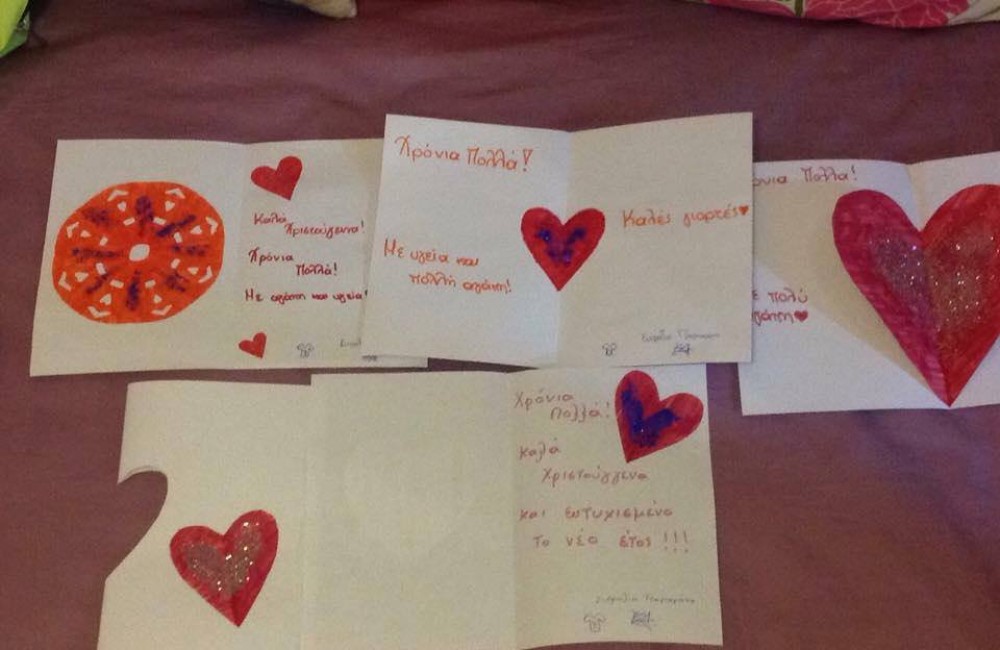 Καλά
Χριστούγεννα!
Χρόνια
Πολλά!
Με αγάπη και υγεία!
Χρόνια Πολλά!
Με υγεία και
πολλή αγάπη!
Καλές γιορτές♥
Πολλα!
πολύ
Χρόνια
Πολλά!
Καλά
Χριστούγγενα
και ευτυχισμένο
το νέο έτος!!!